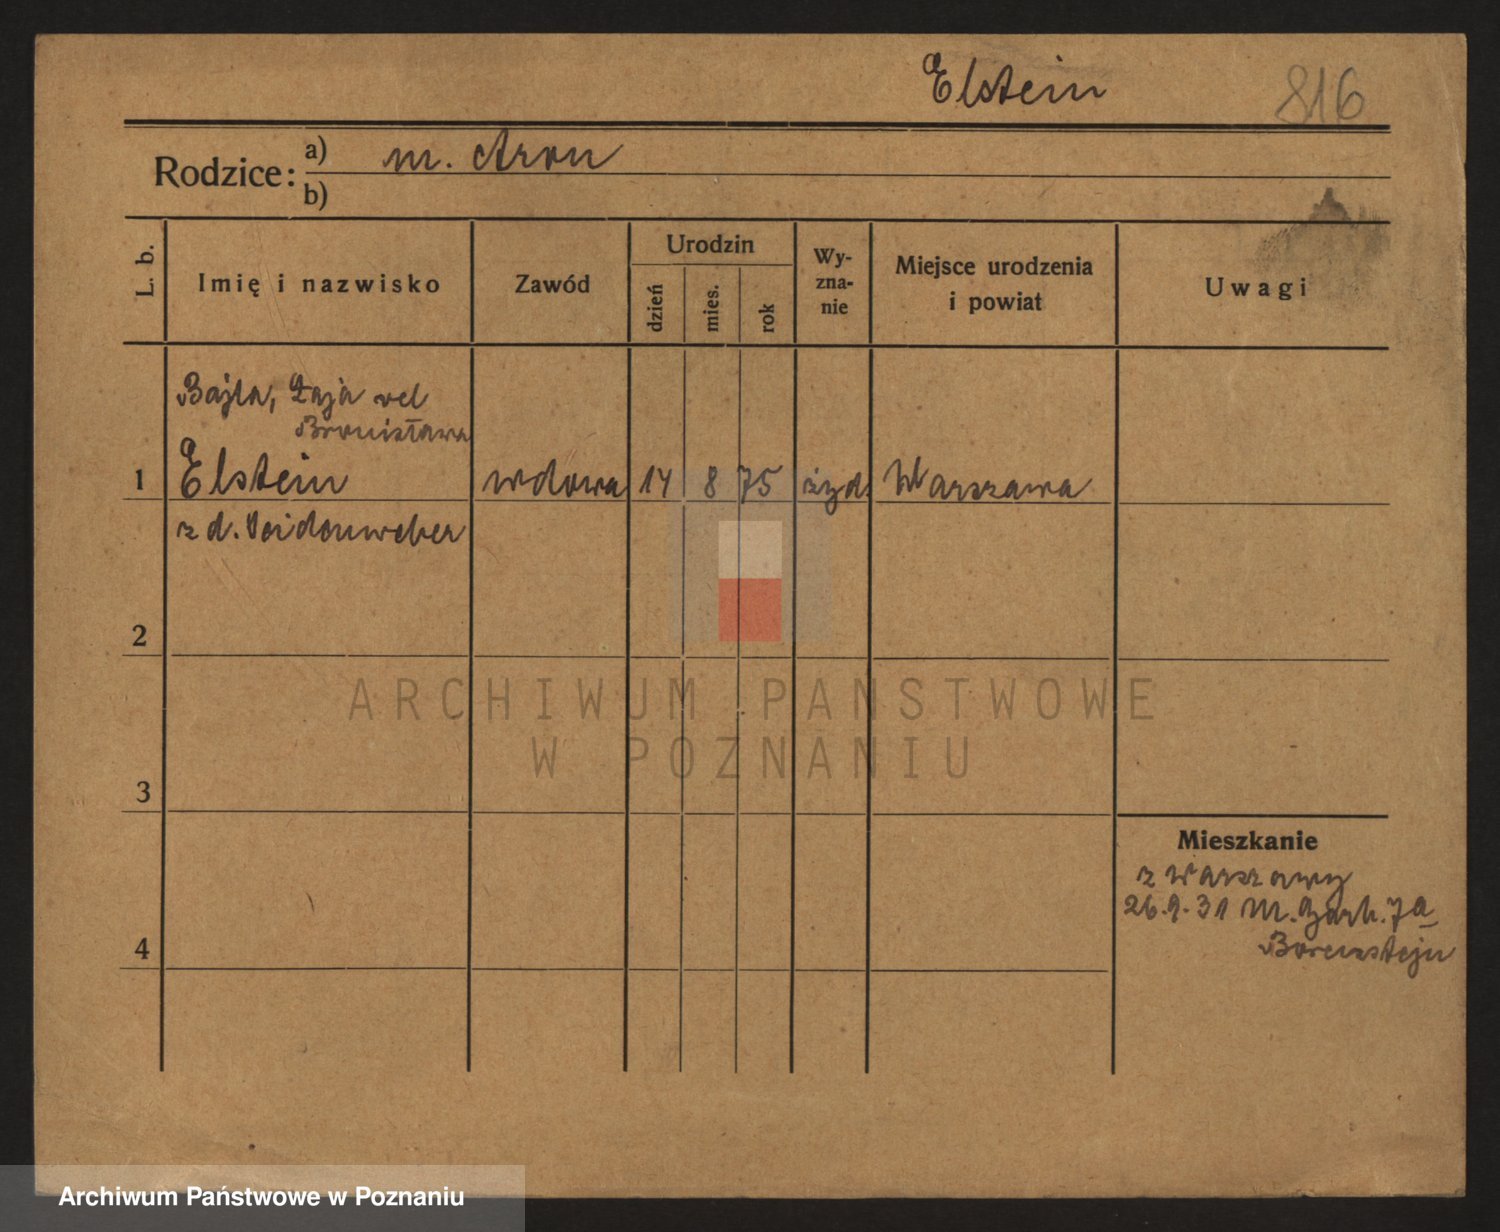 Elstein 816
Rodzice: a) m. Aron
b)
L. b. Imię i nazwisko Zawód Urodzin dzień mies. rok Wy-zna-nie Miejsce urodzenia i powiat Uwagi
Bajla, Łaja vel
Bronisława
1 Elstein wdowa 14 8 75 żyd. Warszawa
z d.
2
3
4
Mieszkanie
z Warszawy
26.9.31 M. Garb. 7a
Borensztejn
ARCHIWUM PAŃSTWOWE
W POZNANIU
Archiwum Państwowe w Poznaniu